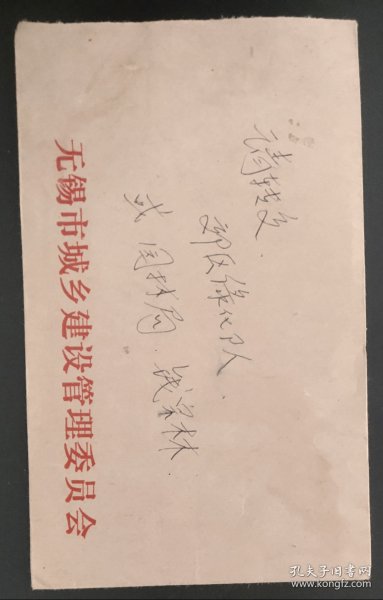 请转交
郊区绿化队
或园林局 钱宗林
无锡市城乡建设管理委员会
孔夫子旧书网
www.kongfz.com